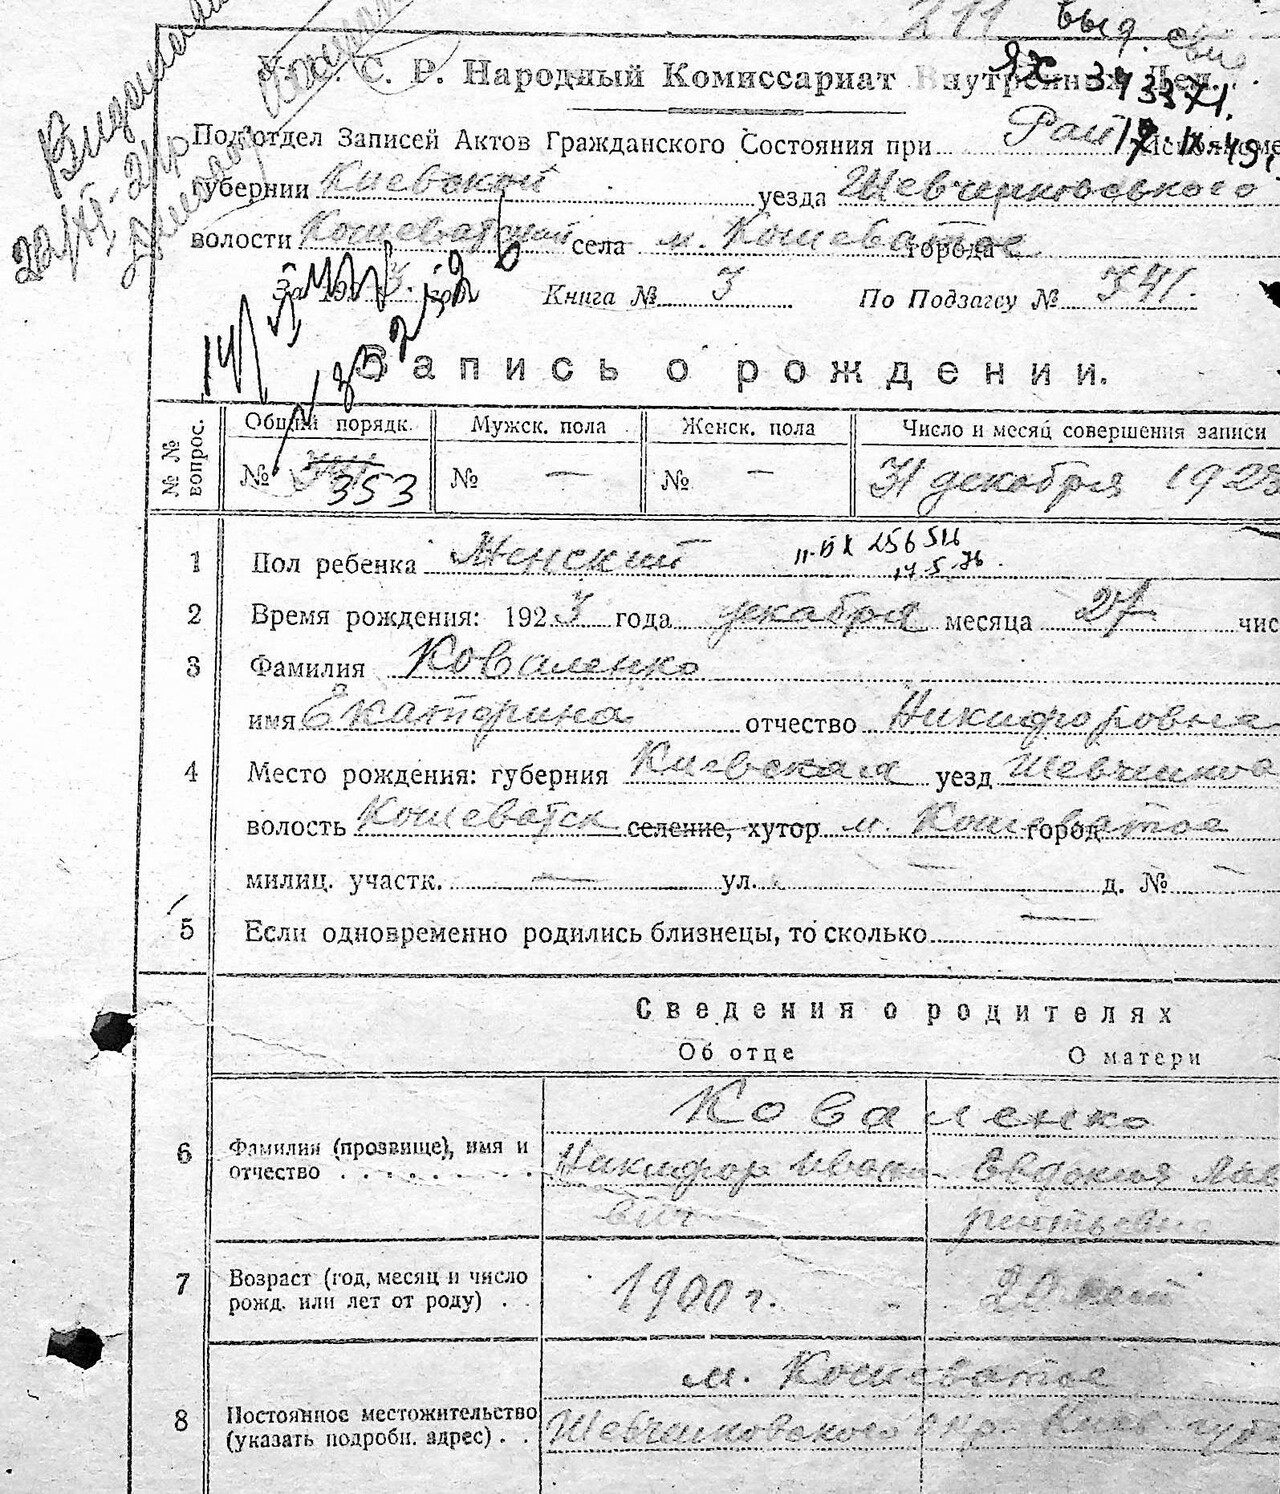 выд.
ЯХ 343371.
С. Р. Народный Комиссариат Внутренних Дел.
Подотдел Записей Актов Гражданского Состояния при Рай
губернии Киевской уезда Шевченковського
волости Кошеватской села м. Кошеватое города
Книга № 3 По Подзагсу № 341.
Запись о рождении.
№ № вопрос. Общий порядк. Мужск. пола Женск. пола Число и месяц совершения записи
№ 353 № — № — 31 декабря 1923
1 Пол ребенка Женский
256516
17.5.76
2 Время рождения: 1923 года декабря месяца 27 чис
3 Фамилия Коваленко
имя Екатерина отчество Никифоровна
4 Место рождения: губерния Киевская уезд Шевченков
волость Кошеватск селение, хутор м. Кошеватое город
милиц. участк. — ул. — д. № —
5 Если одновременно родились близнецы, то сколько —
Сведения о родителях
Об отце О матери
Коваленко
6 Фамилии (прозвище), имя и отчество Никифор Иванович Евдокия Лаврентьевна
7 Возраст (год, месяц и число рожд. или лет от роду) 1900 г. 20 лет
м. Кошеватое
8 Постоянное местожительство (указать подробн. адрес) Шевченковского окр. Киев. губ